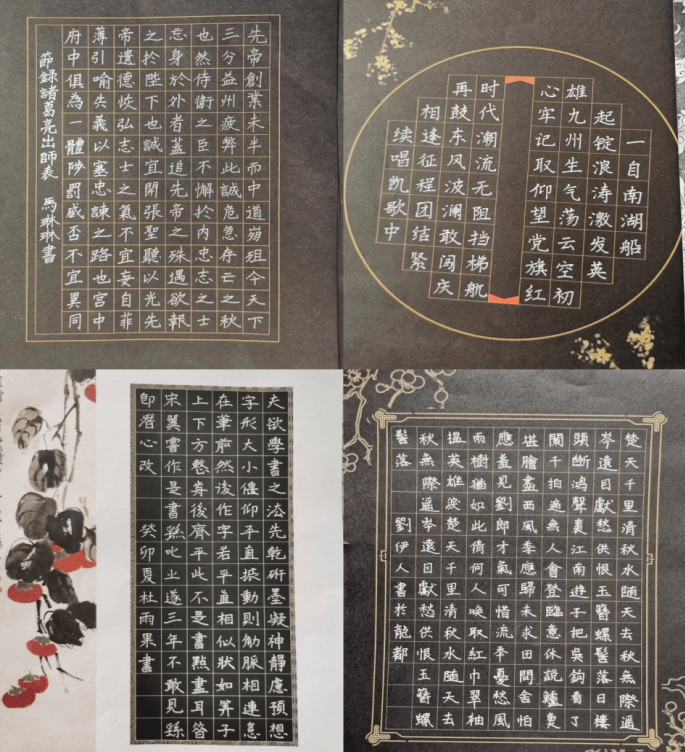 先帝創業未半而中道崩殂今天下
三分益州疲弊此誠危急存亡之秋
也然侍衛之臣不懈於内忠志之士
忘身於外者蓋追先帝之殊遇欲報
之於陛下也誠宜開張聖聽以光先
帝遺德恢弘志士之氣不宜妄自菲
薄引喻失義以塞忠諫之路也宫中
府中俱為一體陟罰臧否不宜異同
節録諸葛亮出師表 馬琳琳書
一自南湖船
起锭浪涛激发英
雄九州生气荡云空初
心牢记取仰望党旗红
时代潮流无阻挡梯航
再鼓东风波澜敢闯庆
相逢征程团结紧
续唱凯歌中
夫欲學書之法先乾研墨凝神靜慮預想
字形大小偃仰平直振動則觔脉相連意
在筆前然後作字若平直相似狀如筭子
上下方整歬後齊平此不是書點畫耳昝
宋翼嘗作是書繇叱之遂三年不敢見繇
即潛心改
癸卯夏杜雨果書
楚天千里清秋水随天去秋無際遥
岑遠目獻愁供恨玉簪螺髻落日樓
頭斷鴻聲裏江南遊子把吳鈎看了
闌干拍遍無人會登臨意休說鱸魚
堪膾盡西風季應歸未求田問舍怕
應羞見劉郎才氣可惜流年憂愁風
雨樹猶如此倩何人喚取紅巾翠袖
揾英雄淚楚天千里清秋水随天去
秋無際遥岑遠目獻愁供恨玉簪螺
髻落 劉伊人書於龍都